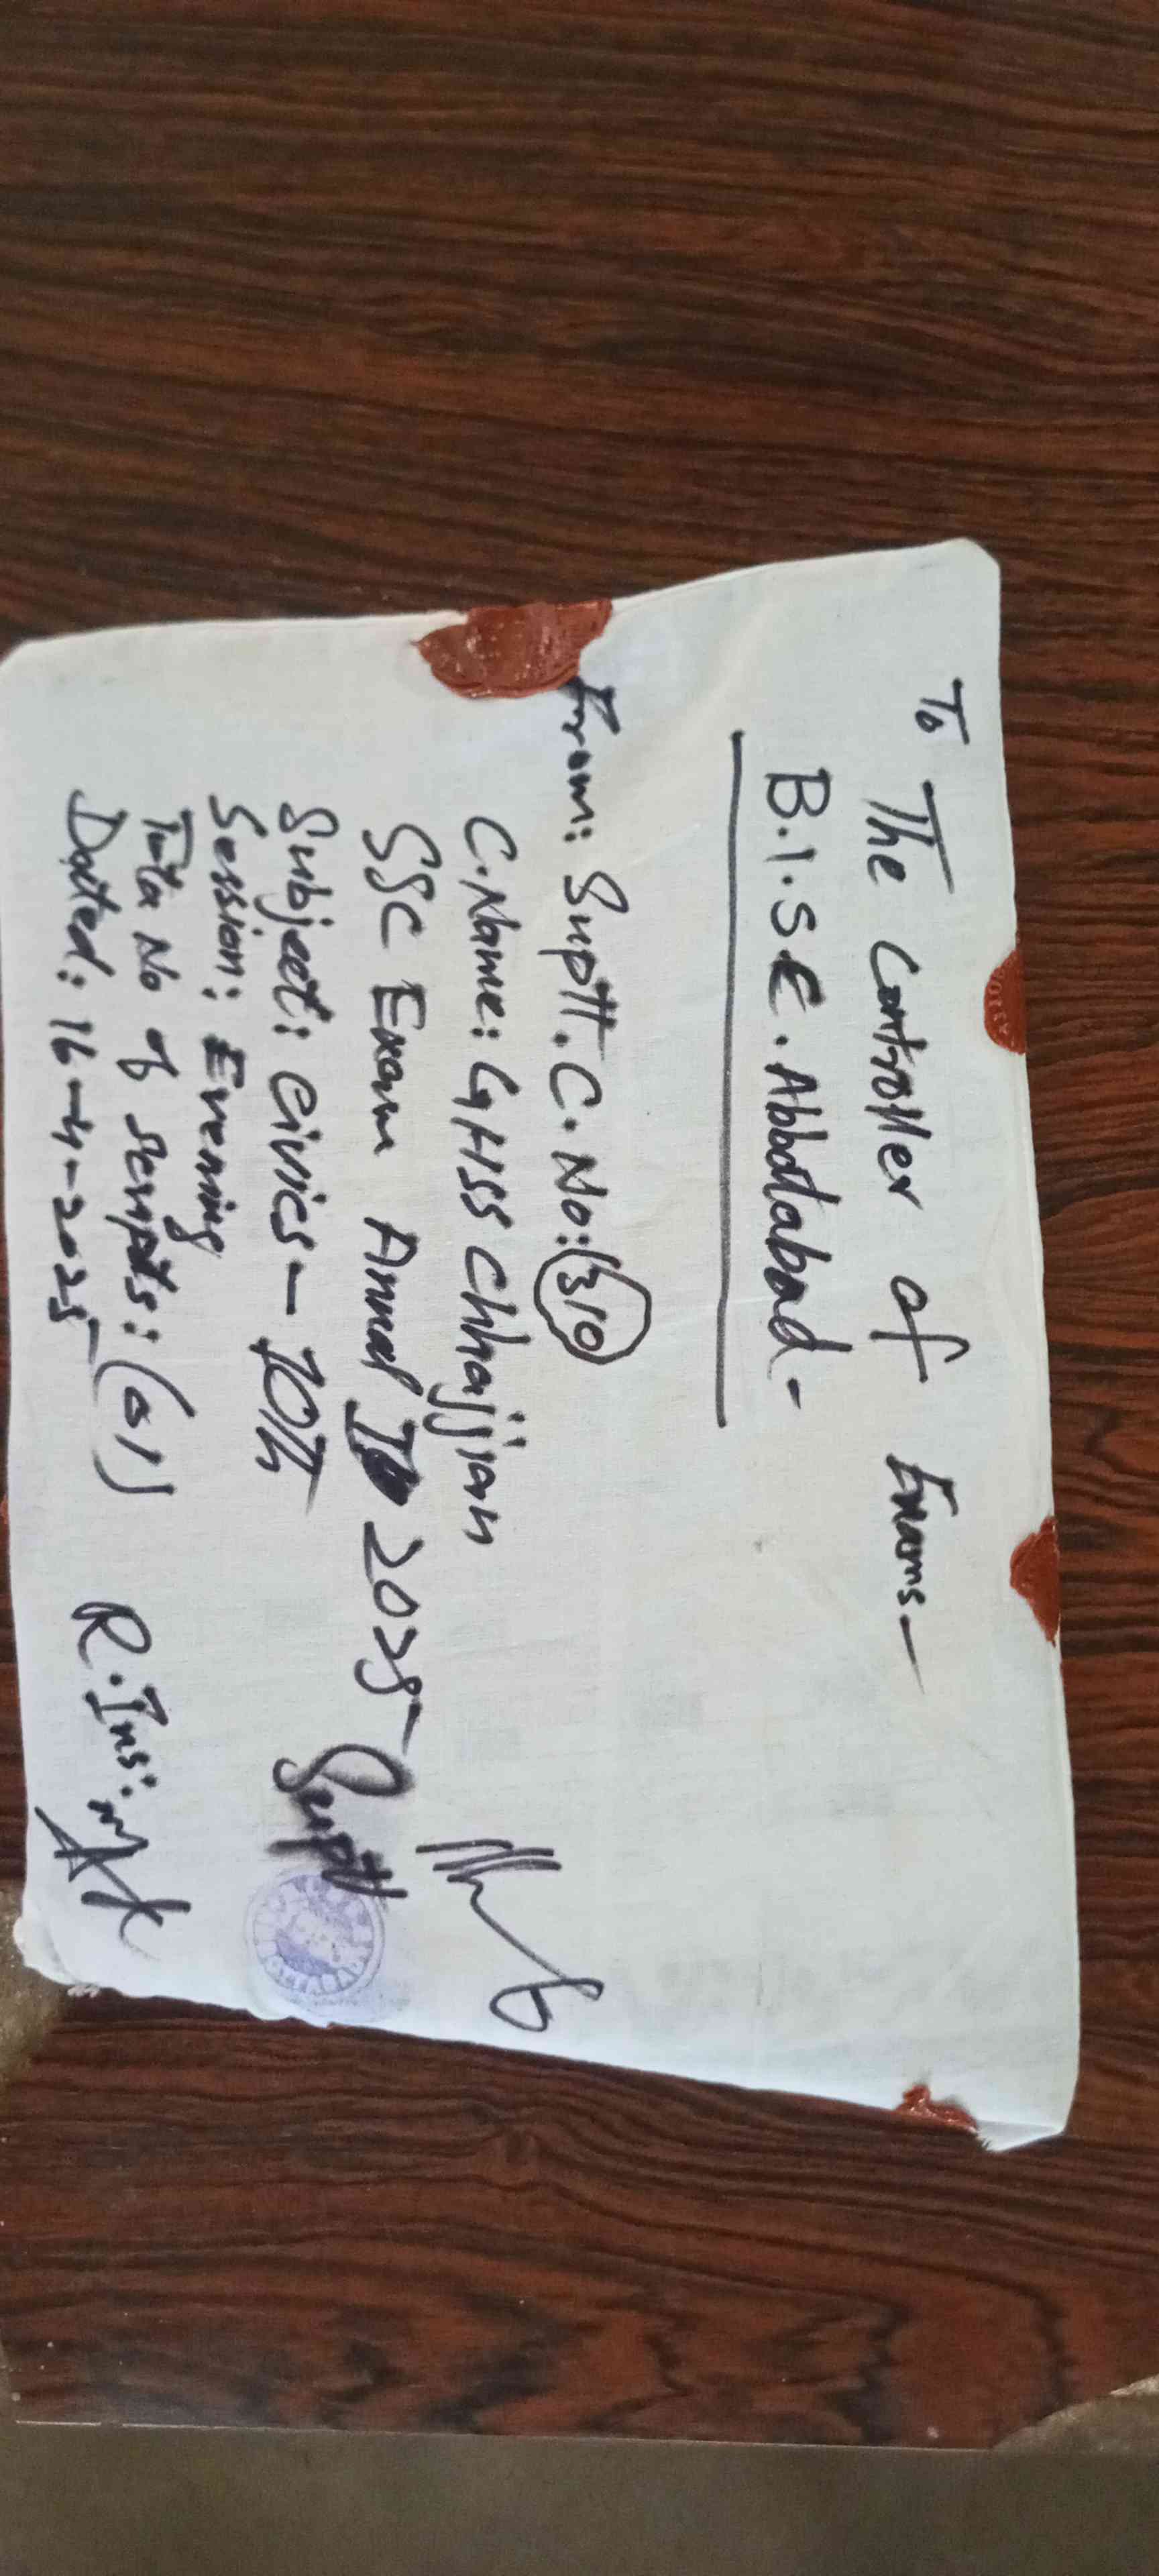 To
The Controller of Exams-
B.I.S.E. Abbottabad-
From: Suptt. C. No: 310
C. Name: GHSS Chhajjian
SSC Exam Annual 2025
Subject: Civics - 10th
Session: Evening
Total No of scripts: (01)
Dated: 16-4-2025
Suptt
R. Ins: